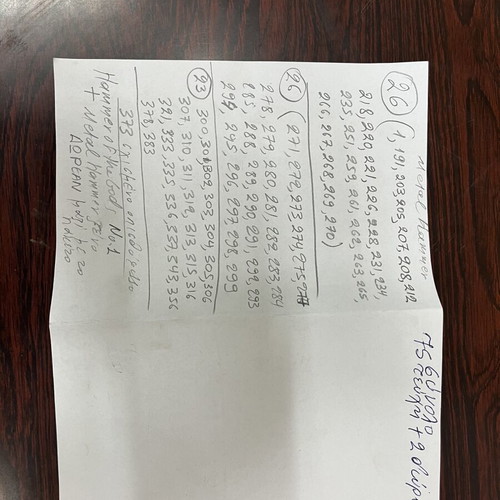 Metal Hammer
26 (1, 191, 203, 205, 207, 208, 212
218, 220, 221, 226, 228, 231, 234,
235, 251, 259, 261, 262, 263, 265,
266, 267, 268, 269, 270)
26 (271, 272, 273, 274, 275, 277
278, 279, 280, 281, 282, 283, 284
285, 288, 289, 290, 291, 292, 293
294, 295, 296, 297, 298, 299
23 300, 301, 302, 303, 304, 305, 306
307, 310, 311, 312, 313, 315, 316
321, 333, 335, 336, 337, 343, 356
373
378, 383
Hammer of the Gods No 1
+ Metal Hammer
75 σύνολο
τεύχη +